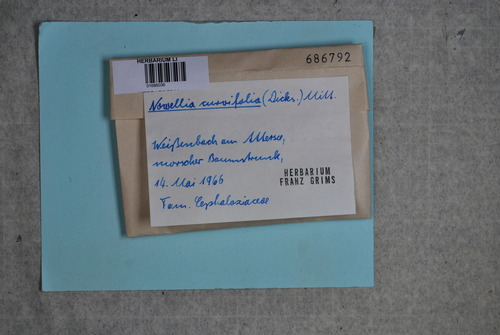 686792
HERBARIUM LI
Nowellia curvifolia (Dicks.) Mitt.
Weißenbach am Attersee,
morscher Baumstrunk,
14. Mai 1966
HERBARIUM
FRANZ GRIMS
Fam. Cephaloziaceae